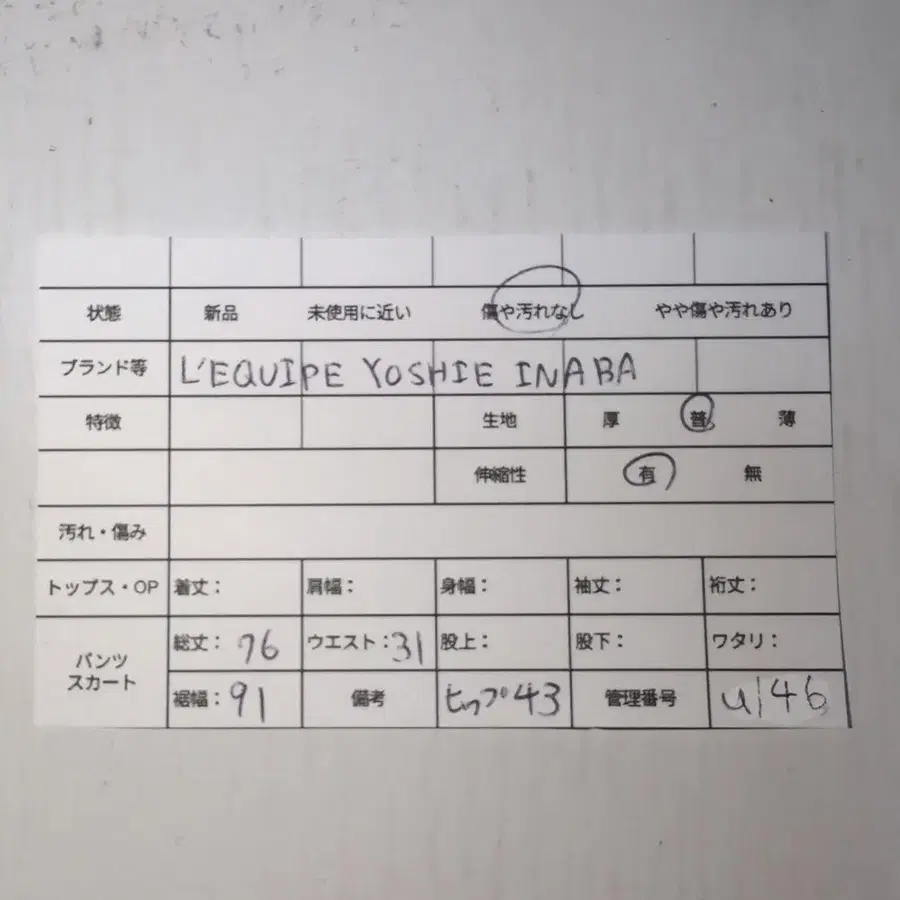 状態 新品 未使用に近い 傷や汚れなし やや傷や汚れあり
ブランド等 L'EQUIPE YOSHIE INABA
特徴 生地 厚 普 薄
伸縮性 有 無
汚れ・傷み
トップス・OP 着丈： 肩幅： 身幅： 袖丈： 裄丈：
パンツ
スカート
総丈：76 ウエスト：31 股上： 股下： ワタリ：
裾幅：91 備考 ヒップ43 管理番号 U146